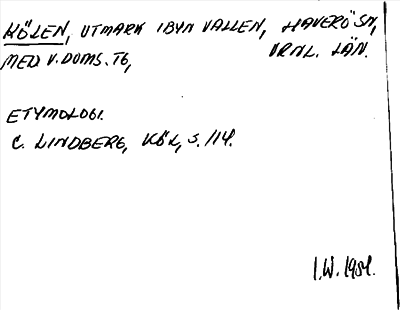 KÖLEN, UTMARK I BYN VALLEN, HAVERÖ SN,
MED V. DOMS. TG, VRNL. LÄN.
ETYMOLOGI.
C. LINDBERG, KÖL, S. 114.
I.W. 1984.